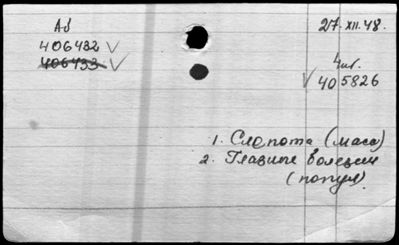 Аб
406432 ✓
406433 ✓
27.XII.48.
4шт.
✓ 405826
1. Слепота (масс)
2. Глазные болезни
(попул)